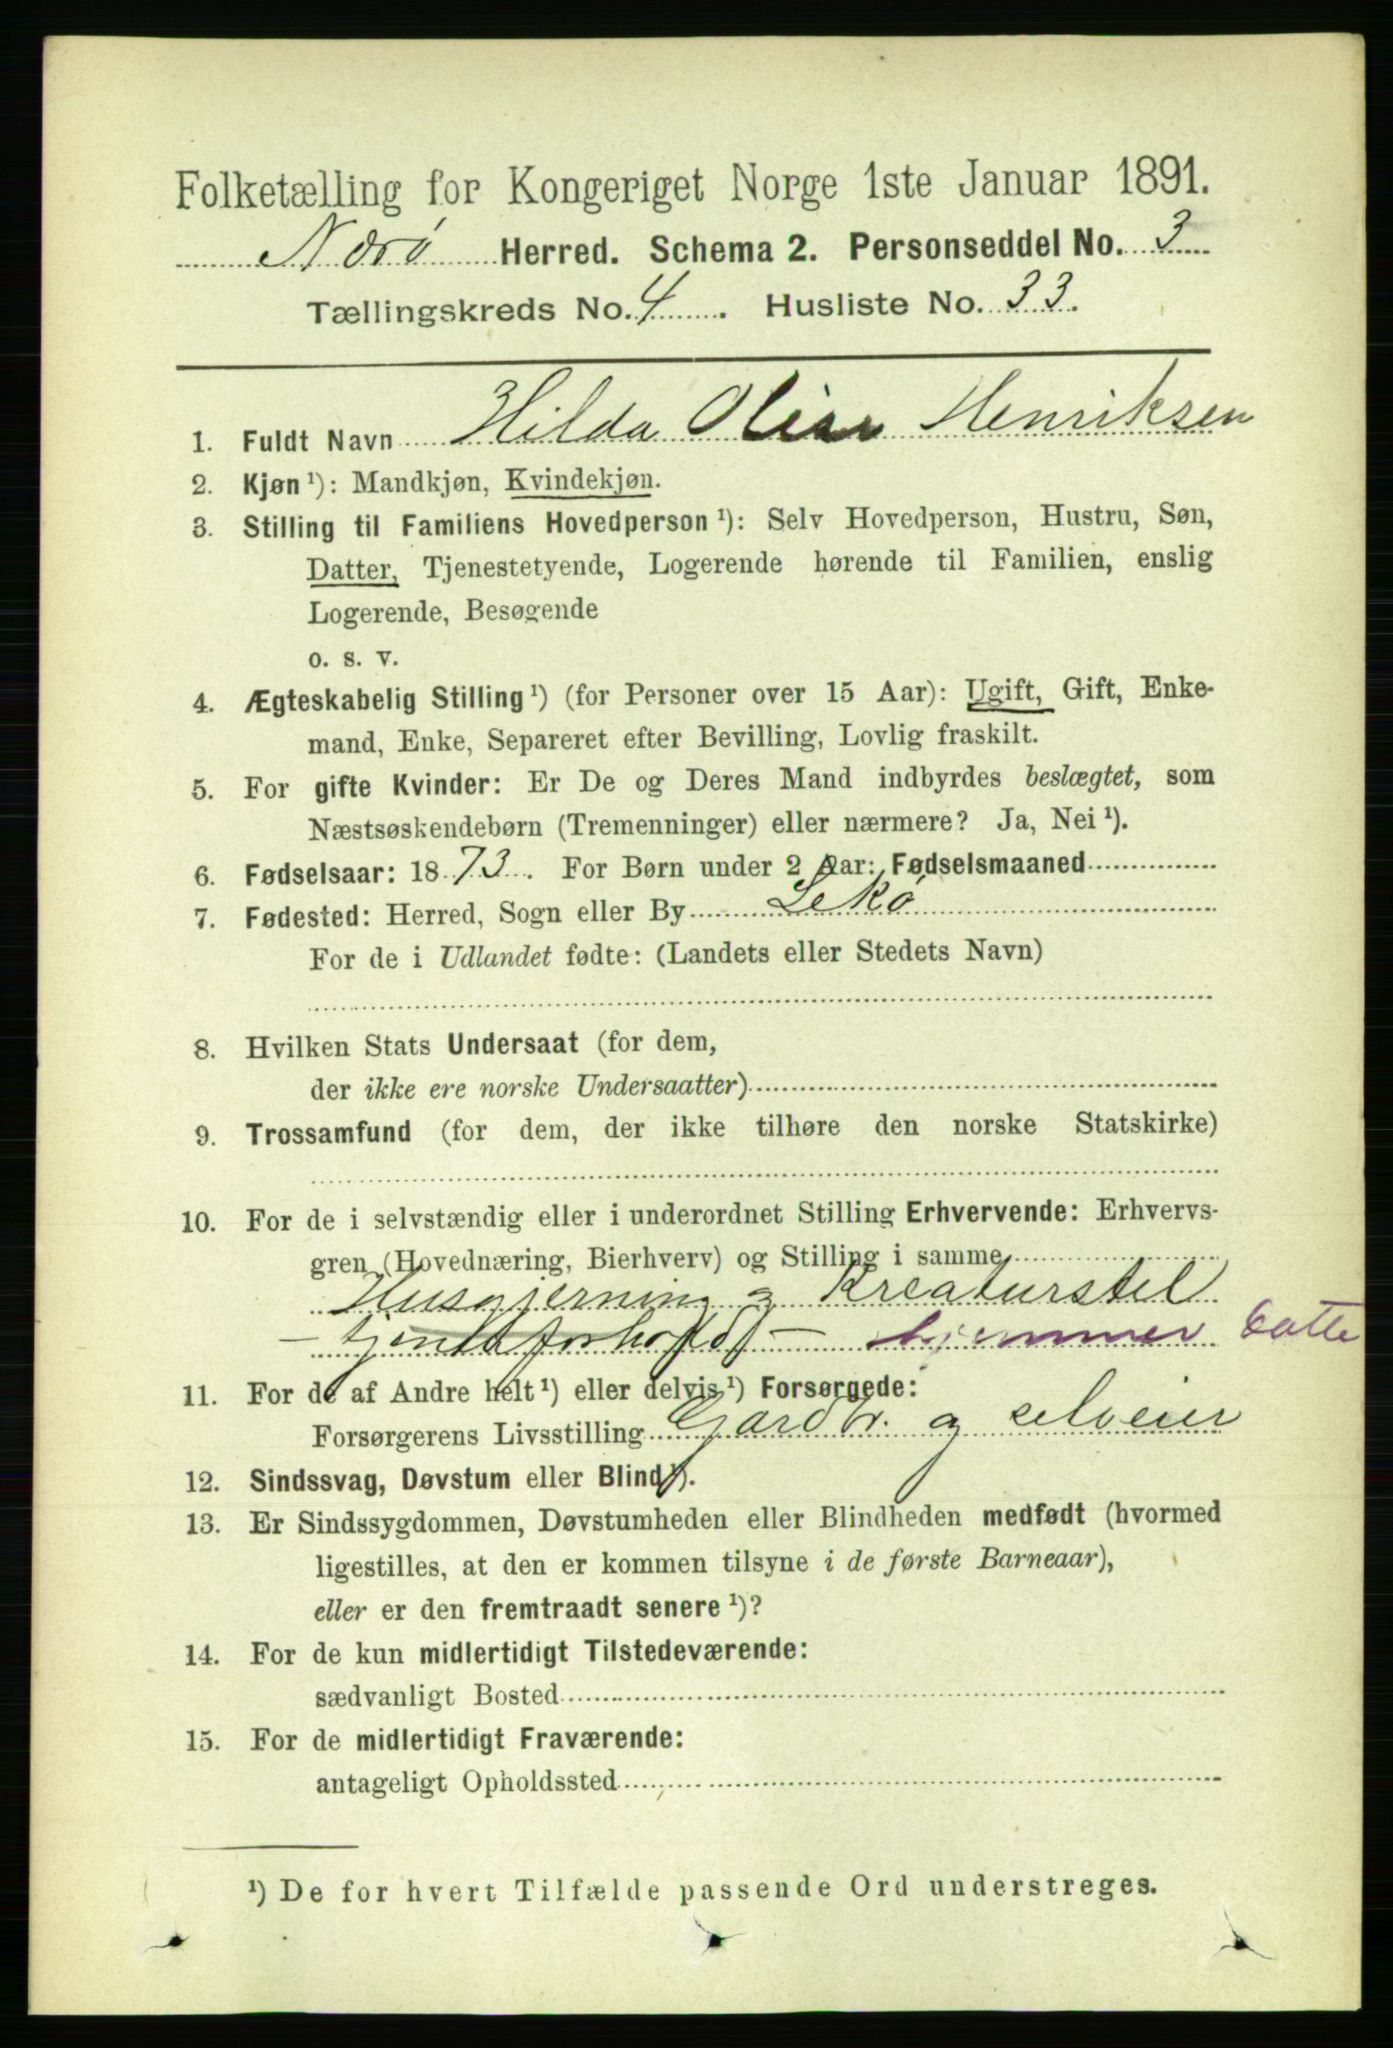 Folketælling for Kongeriget Norge 1ste Januar 1891.
Nærø Herred. Schema 2. Personseddel No. 3
Tællingskreds No. 4. Husliste No. 33.
1. Fuldt Navn Hilda Henriksen
2. Kjøn ¹): Mandkjøn, Kvindekjøn.
3. Stilling til Familiens Hovedperson ¹): Selv Hovedperson, Hustru, Søn,
Datter, Tjenestetyende, Logerende hørende til Familien, enslig
Logerende, Besøgende
o. s. v.
4. Ægteskabelig Stilling ¹) (for Personer over 15 Aar): Ugift, Gift, Enke-
mand, Enke, Separeret efter Bevilling, Lovlig fraskilt.
5. For gifte Kvinder: Er De og Deres Mand indbyrdes beslægtet, som
Næstsøskendebørn (Tremenninger) eller nærmere? Ja, Nei ¹).
6. Fødselsaar: 1873. For Børn under 2 Aar: Fødselsmaaned
7. Fødested: Herred, Sogn eller By Lekø
For de i Udlandet fødte: (Landets eller Stedets Navn)
8. Hvilken Stats Undersaat (for dem,
der ikke ere norske Undersaatter)
9. Trossamfund (for dem, der ikke tilhøre den norske Statskirke)
10. For de i selvstændig eller i underordnet Stilling Erhvervende: Erhvervs-
gren (Hovednæring, Bierhverv) og Stilling i samme
Husgjerning og Kreaturstel
hjemmev Datte
11. For de af Andre helt ¹) eller delvis ¹) Forsørgede:
Forsørgerens Livsstilling Gardbr. og selveier
12. Sindssvag, Døvstum eller Blind ¹).
13. Er Sindssygdommen, Døvstumheden eller Blindheden medfødt (hvormed
ligestilles, at den er kommen tilsyne i de første Barneaar),
eller er den fremtraadt senere ¹)?
14. For de kun midlertidigt Tilstedeværende:
sædvanligt Bosted
15. For de midlertidigt Fraværende:
antageligt Opholdssted
¹) De for hvert Tilfælde passende Ord understreges.